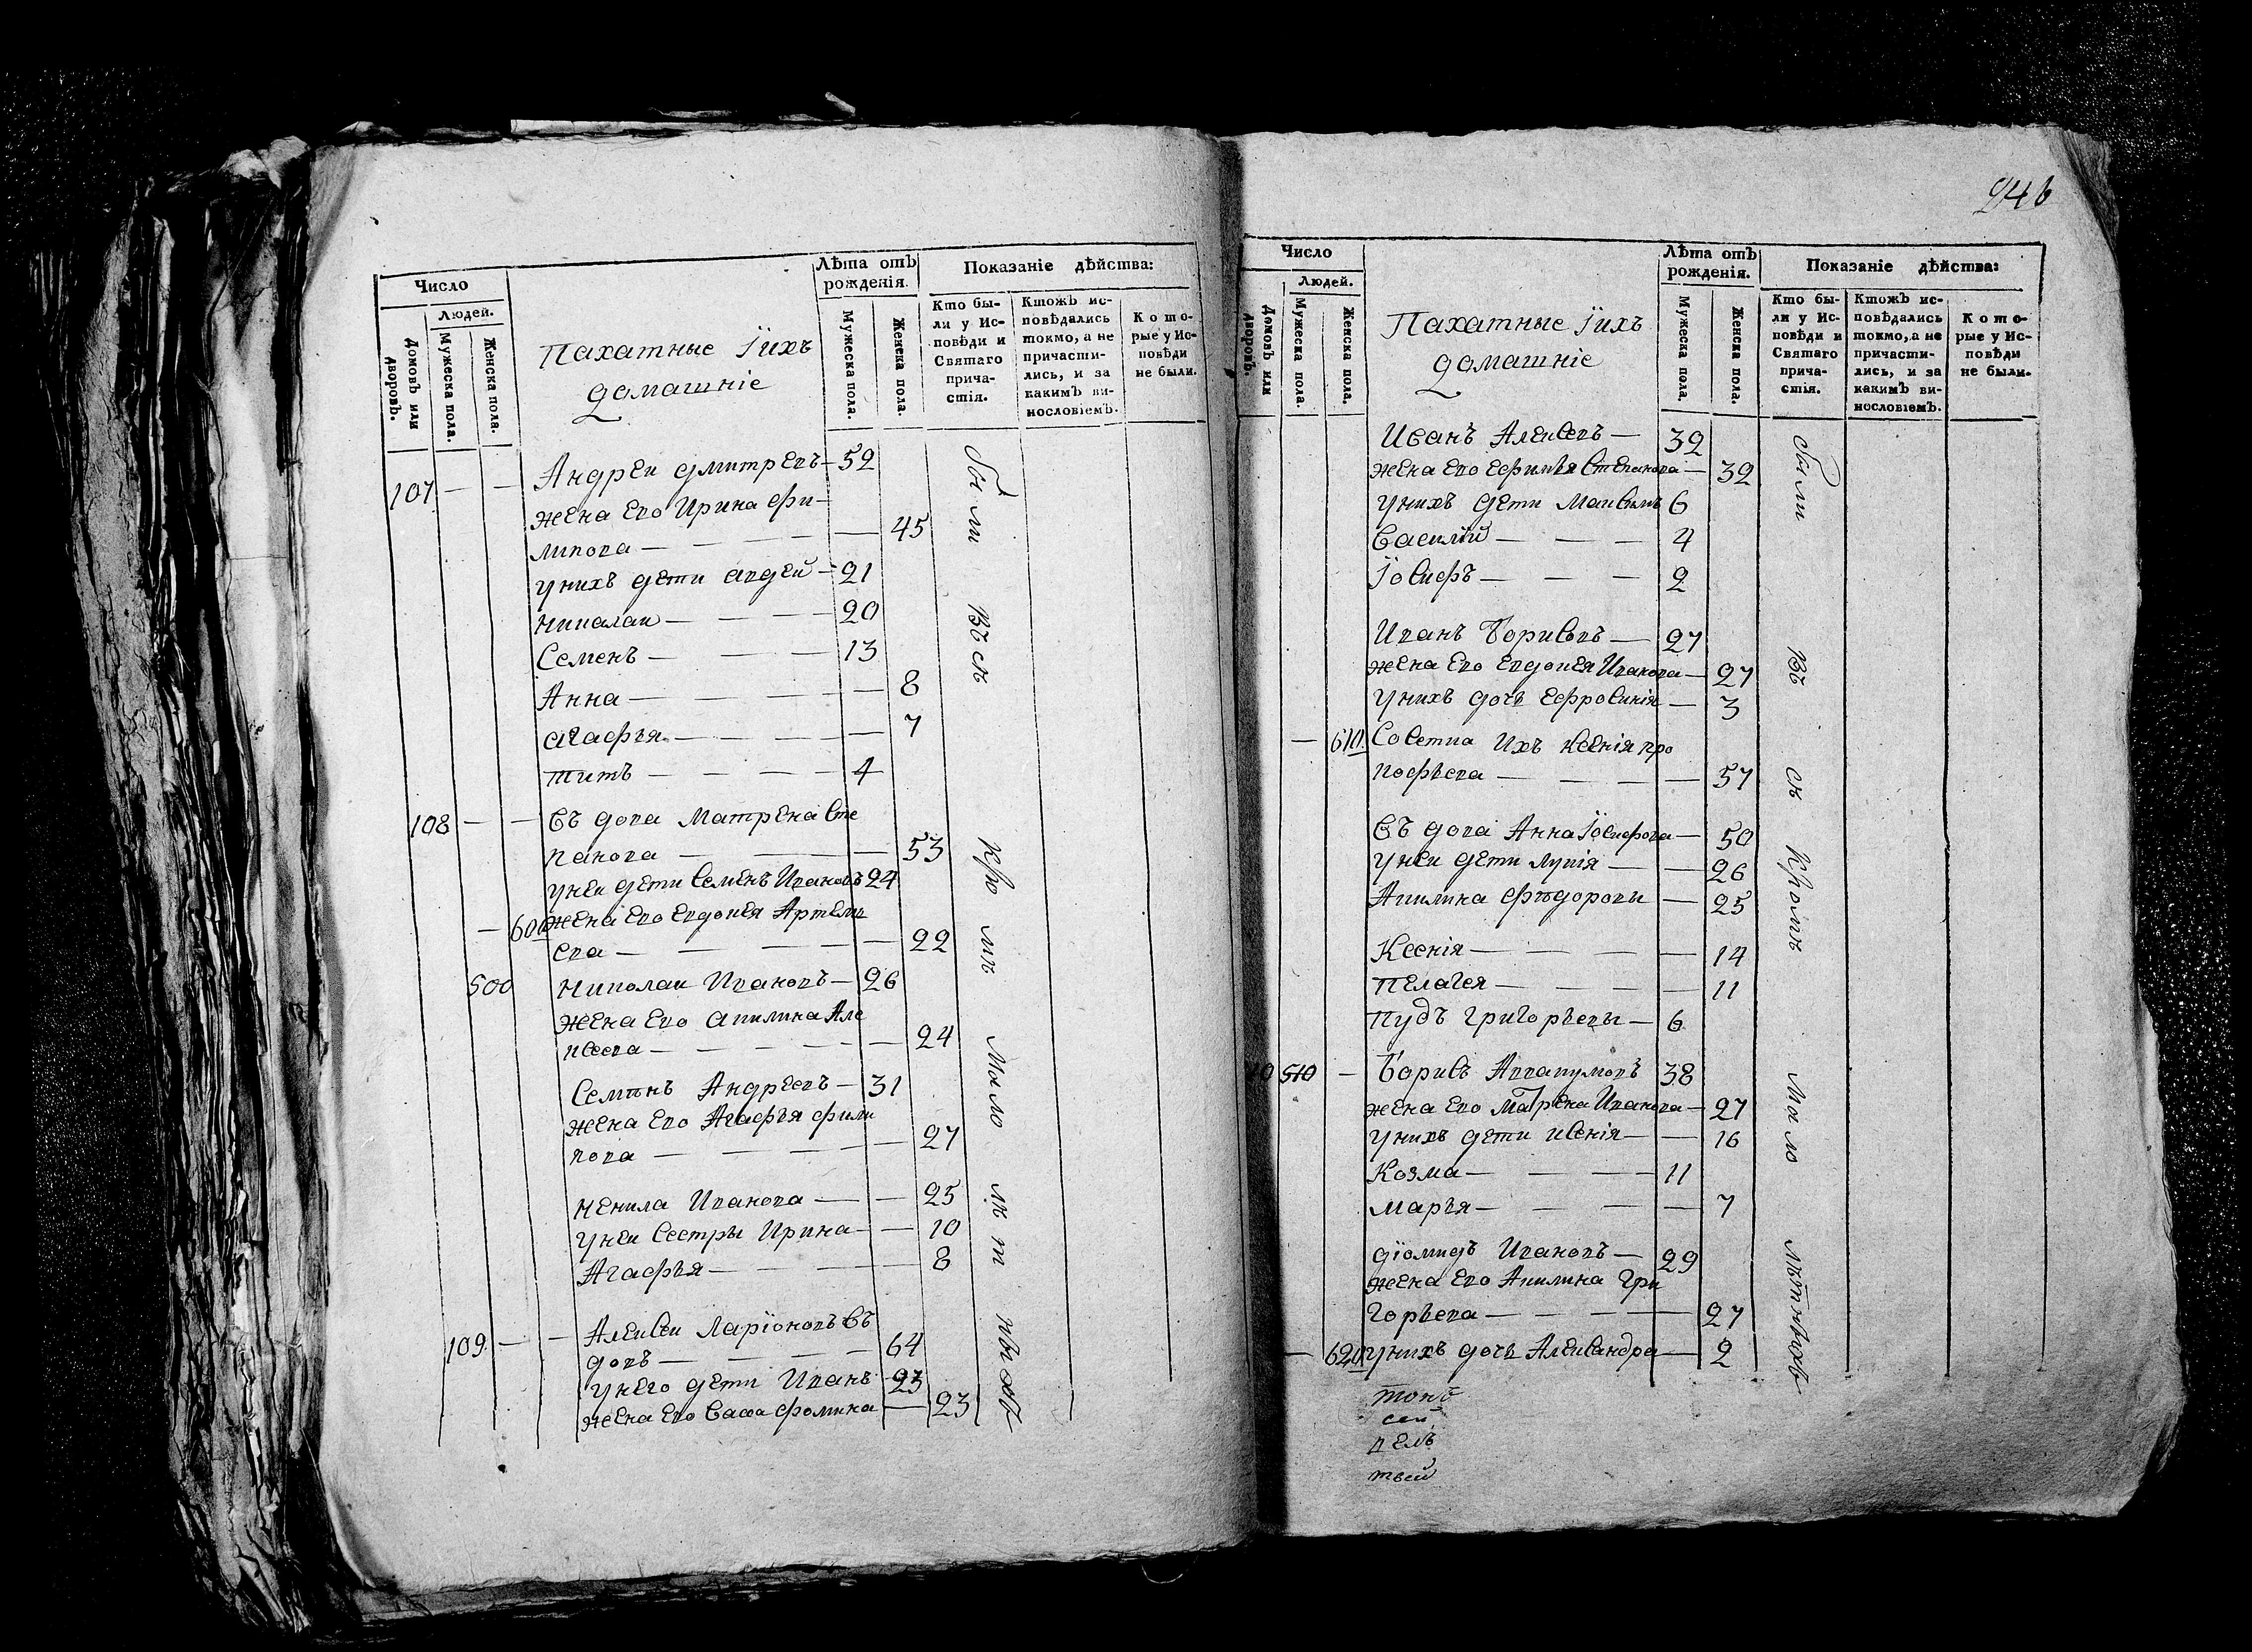 Число
Людей.
Домовъ или дворовъ.
Мужеска пола.
Женска пола.
Пахатные Їихъ
домашніе
Лѣта отъ
рожденія.
Мужеска пола.
Женска пола.
Показаніе дѣйства:
Кто бы-
ли у Ис-
повѣди и
Святаго
прича-
стія.
Ктожъ ис-
повѣдались
токмо, а не
причасти-
лись, и за
какимъ ви-
нословіемъ.
Кото-
рые у Ис-
повѣди
не были.
107 — — Андреи дмитревъ — 52
жена его Ирина фи-
липова — 45
унихъ дети авдей — 21
николаи — 20
Семенъ — 13
Анна — 8
агафья — 7
титъ — 4
108 — — въ дова Матрена Сте
панова — 53
унеи дети Семенъ Ивановъ 24
— 600 жена его евдокея Артемь
ева — 22
500 николаи Ивановъ — 26
жена его акилина Але
ксеева — 24
Семенъ Андреевъ — 31
жена его Агафья фили
пова — 27
ненила Иванова — 25
унеи сестры Ирина — 10
Агафья — 8
109 — — Алексеи Ларїоновъ въ
довъ — 64
унего дети Иванъ 23
жена его Васса фомина — 23
были
всѣ
кро
мѣ
мало
лѣт
нихъ
246
Число
Людей.
Домовъ или дворовъ.
Мужеска пола.
Женска пола.
Пахатные Їихъ
домашніе
Лѣта отъ
рожденія.
Мужеска пола.
Женска пола.
Показаніе дѣйства:
Кто бы-
ли у Ис-
повѣди и
Святаго
прича-
стія.
Ктожъ ис-
повѣдались
токмо, а не
причасти-
лись, и за
какимъ ви-
нословіемъ.
Кото-
рые у Ис-
повѣди
не были.
Иванъ Алексевъ — 32
жена его ефимья Степанова — 32
унихъ дети Максимъ 6
Василїй — 4
Їосифъ — 2
Иванъ Борисовъ — 27
жена его евдокея Иванова — 27
унихъ дочь ефросинія — 3
— 610 Советка ихъ ксенія про
кофьева — 57
въ дова Анна Їосифова — 50
унеи дети лукія — 26
Акилина фѣдоровы — 25
Ксенія — 14
Пелагея — 11
Пудъ григорьевы — 6
510 — Борисъ Аввакумовъ 38
жена его Матрена Иванова — 27
унихъ дети ксенія — 16
Козма — 11
марья — 7
дїомидъ Ивановъ — 29
жена его Акилина Гри
горьева — 27
— 620 унихъ дочь Александра — 2
были
въ
сѣ
Кромѣ
мало
лѣтнихъ